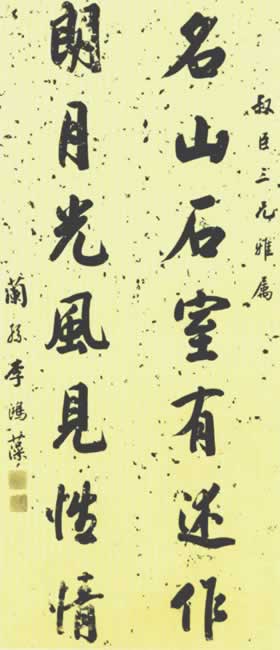 叔臣三兄雅属
名山石室有述作
朗月光風見性情
蘭孫李鴻藻